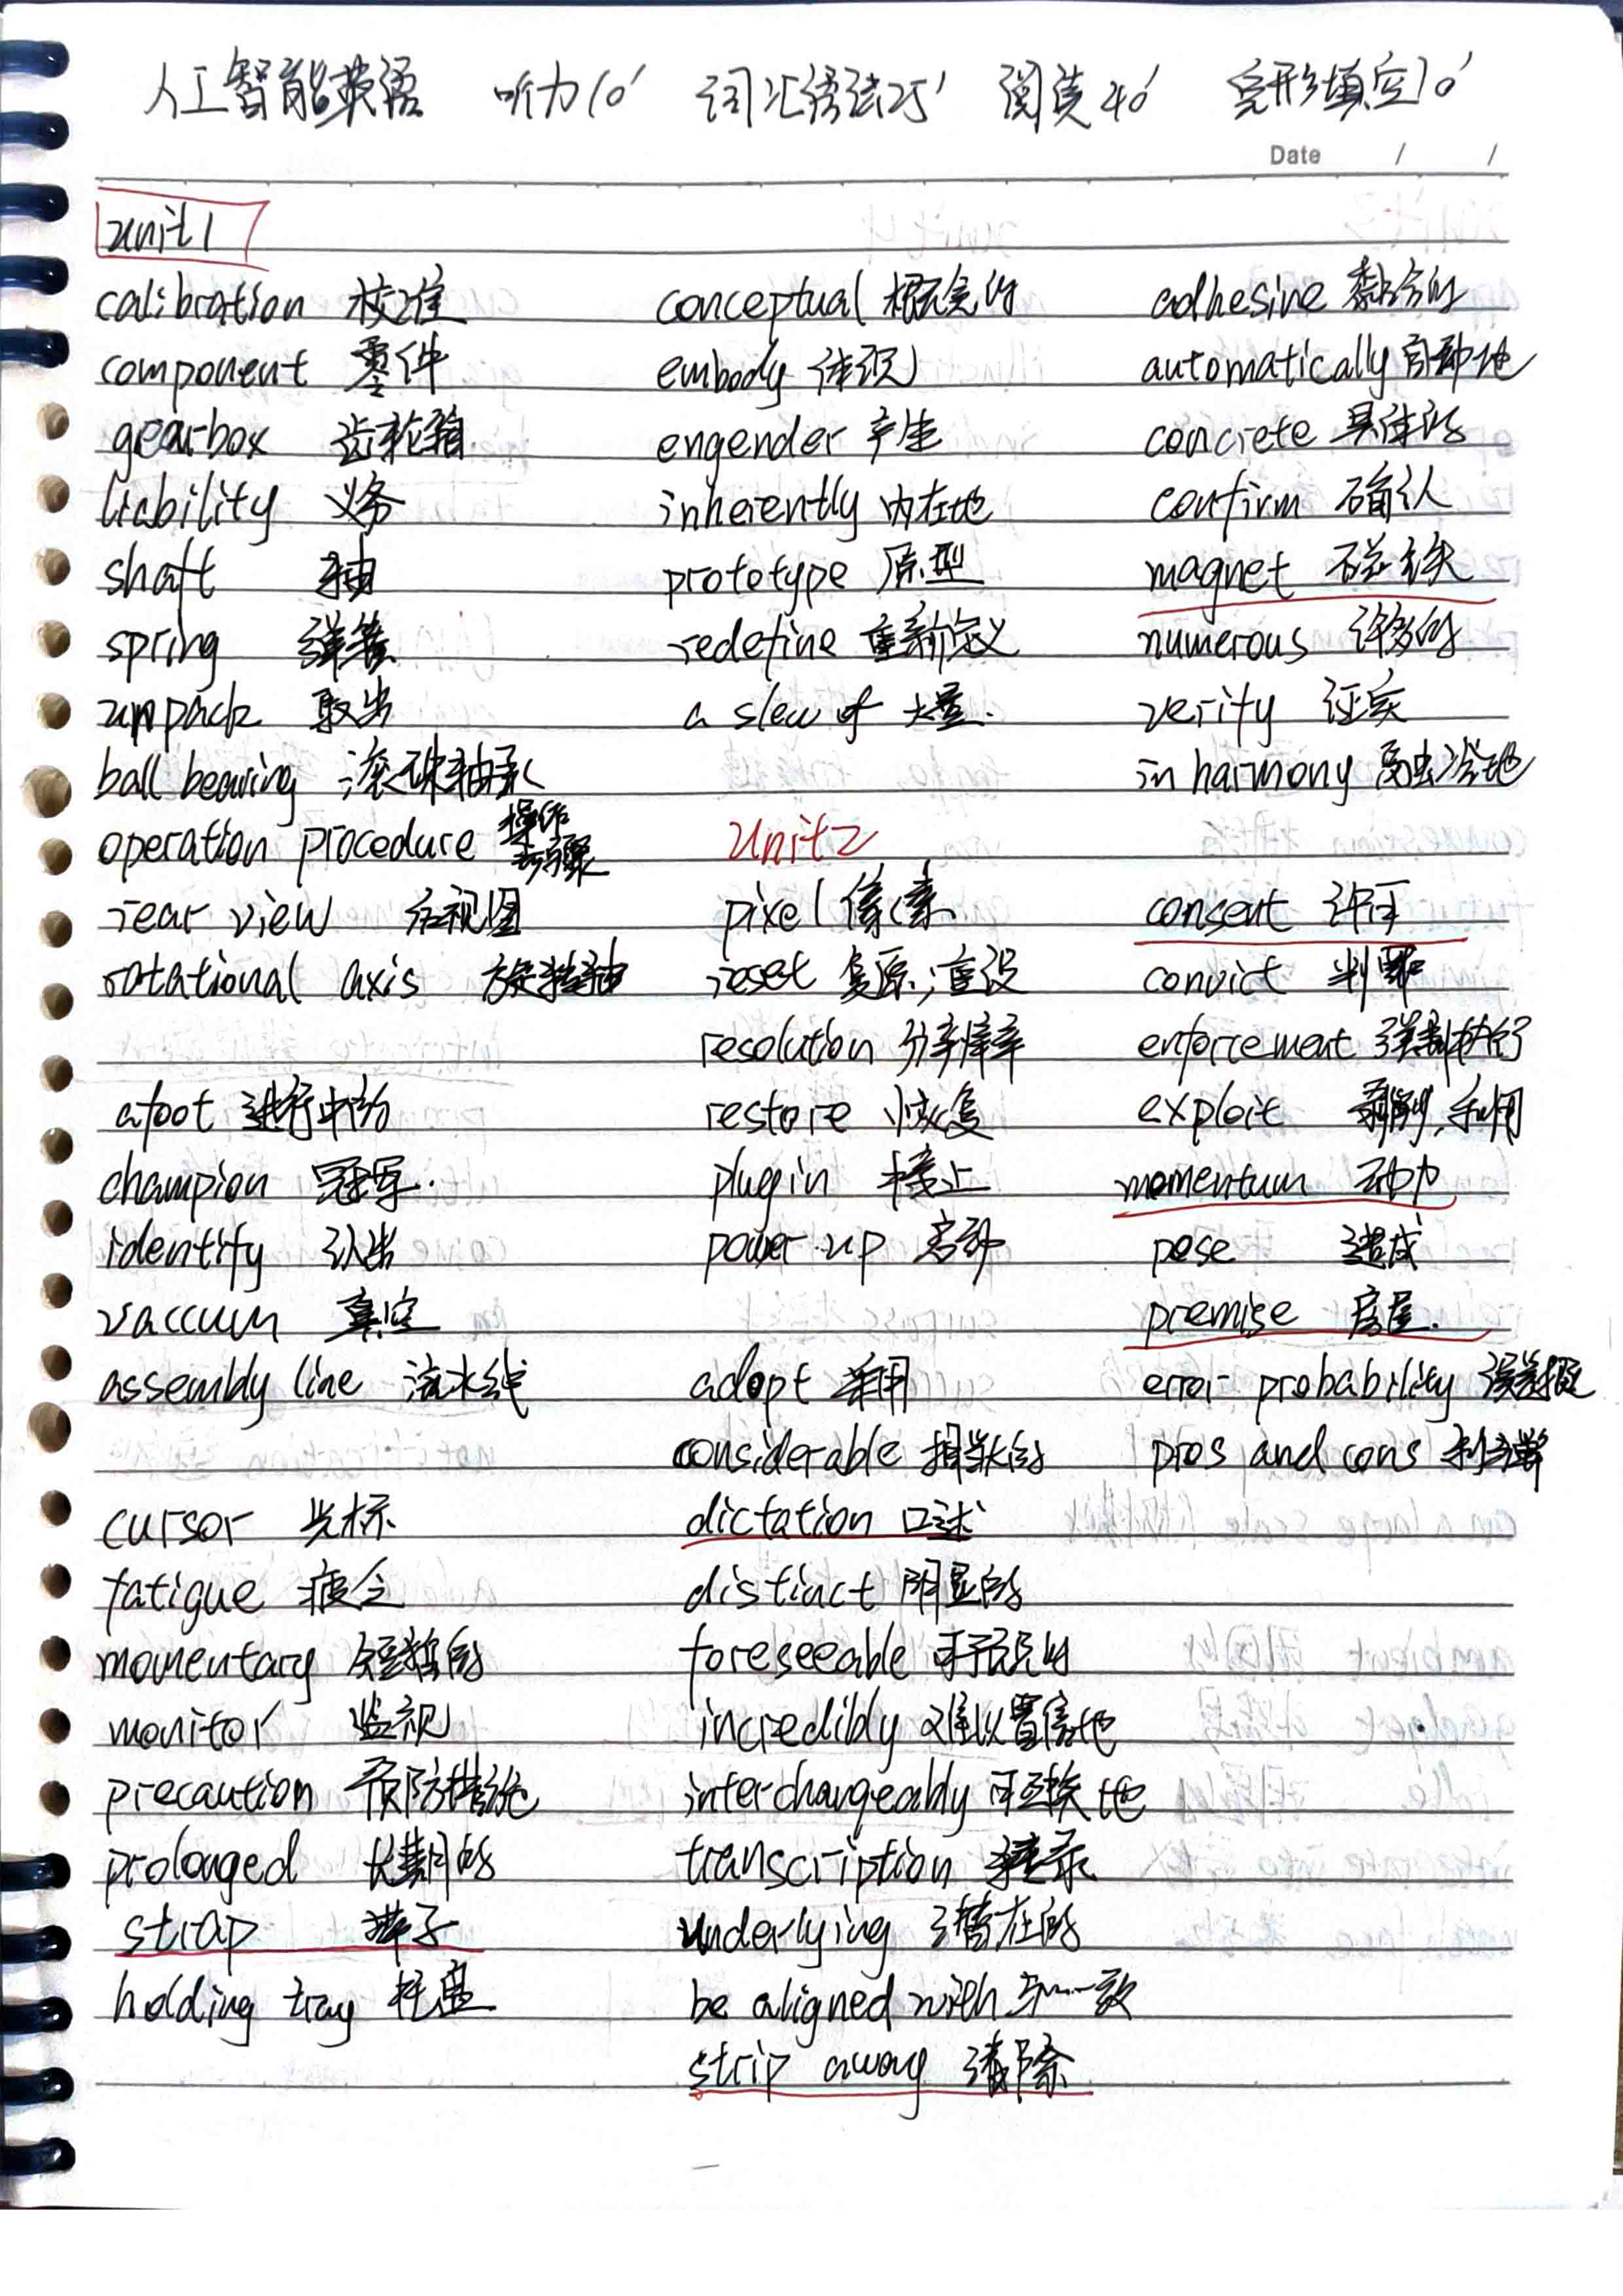 人工智能英语 听力10' 词汇语法25' 阅读40' 完形填空10'
Date / /
unit1
calibration 校准
component 零件
gearbox 齿轮箱
liability 义务
shaft 轴
spring 弹簧
unpack 取出
ball bearing 滚珠轴承
operation procedure 操作步骤
rear view 后视图
rotational axis 旋转轴
afoot 进行中的
champion 冠军.
identify 认出
vaccum 真空
assembly line 流水线
cursor 光标
fatigue 疲劳
momentary 短暂的
monitor 监视
precaution 预防措施
prolonged 长期的
strap 带子
holding tray 托盘
conceptual 概念的
embody 体现
engender 产生
inherently 内在地
prototype 原型
redefine 重新定义
a slew of 大量.
unit2
pixel 像素
reset 复原；重设
resolution 分辨率
restore 恢复
plug in 接上
power up 启动
adopt 采用
considerable 相当大的
dictation 口述
distinct 明显的
foreseeable 可预见的
incredibly 难以置信地
interchangeably 可互换地
transcription 转录
underlying 潜在的
be aligned with 与…一致
strip away 清除
adhesive 黏合的
automatically 自动地
concrete 具体的
confirm 确认
magnet 磁铁
numerous 许多的
verify 证实
in harmony 融洽地
consent 许可
convict 判罪
enforcement 强制执行
exploit 剥削,利用
momentum 动力
pose 造成
premise 房屋.
error probability 误差概
pros and cons 利弊